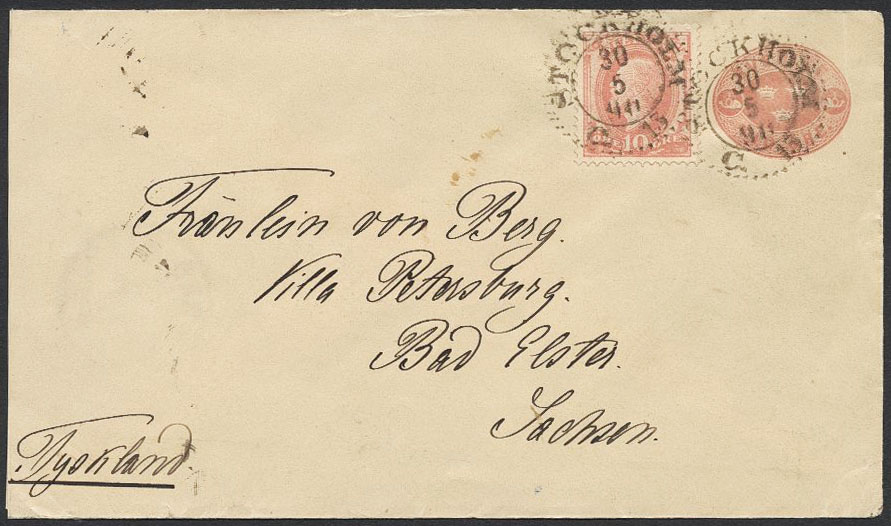 STOCKHOLM
30
5
C. 13
10
STOCKHOLM
30
5
C. 13
Fräulein von Berg.
Villa Petersburg.
Bad Elster.
Sachsen.
Tyskland.